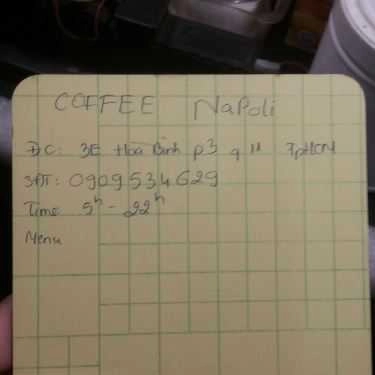 COFFEE NaPoli
ĐC: 3E Hòa Bình p3 q 11 TpHCM
SĐT: 0909534629
Time 5h - 22h
Menu